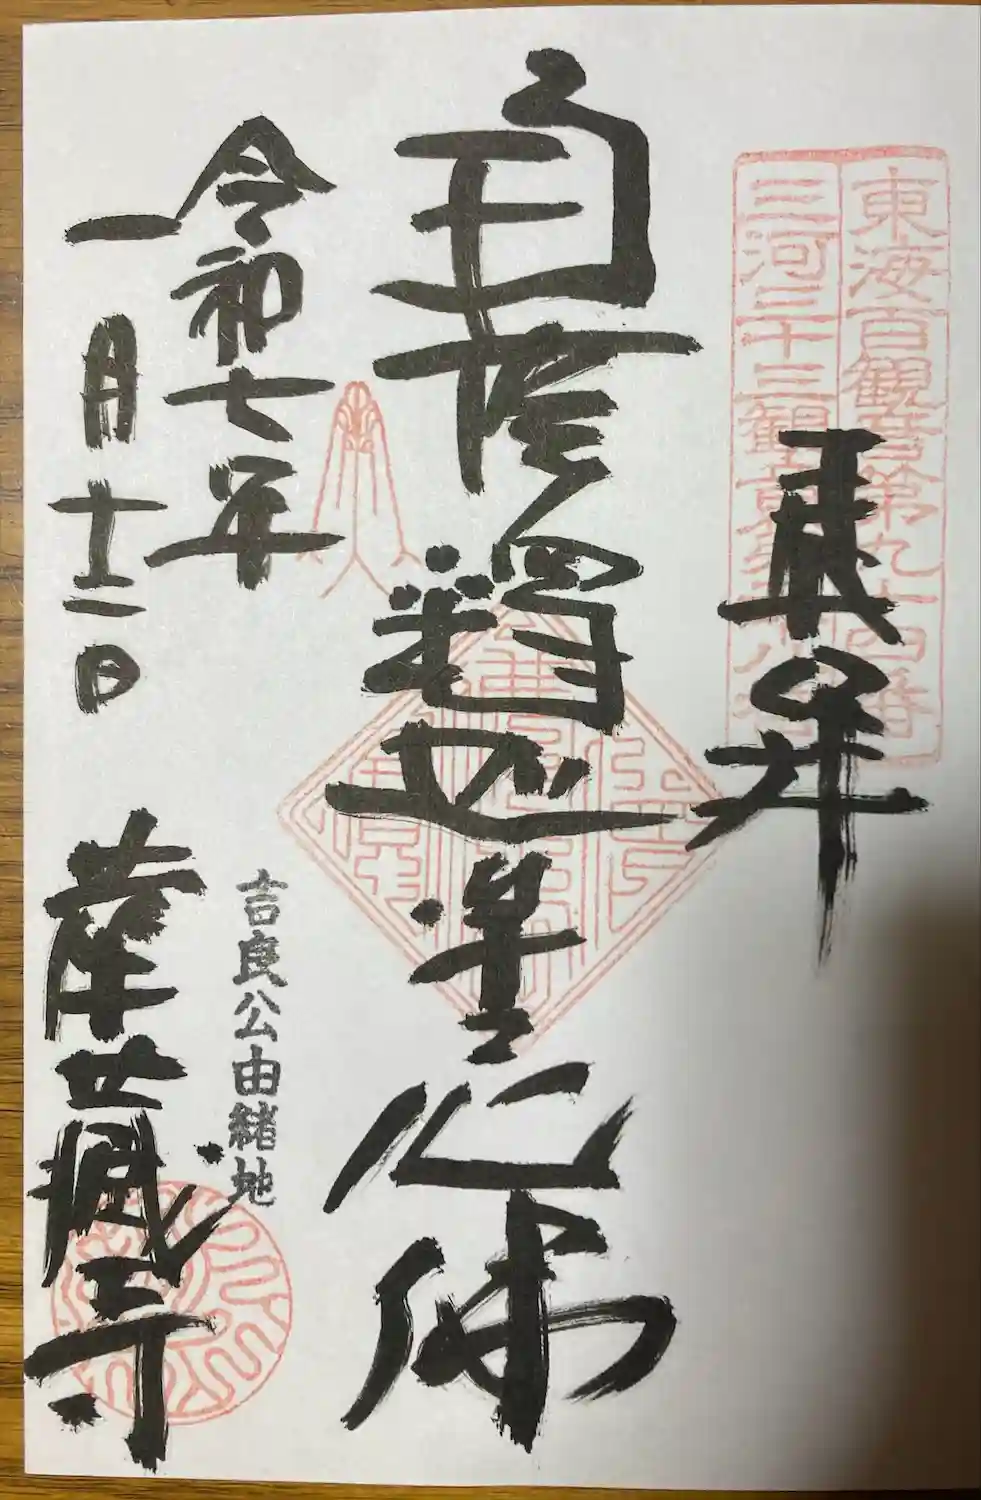 東海百観音第九十四番
三河三十三観音第二十八番
奉拝
釋迦牟尼佛
令和七年
一月十二日
吉良公由緒地
華蔵寺